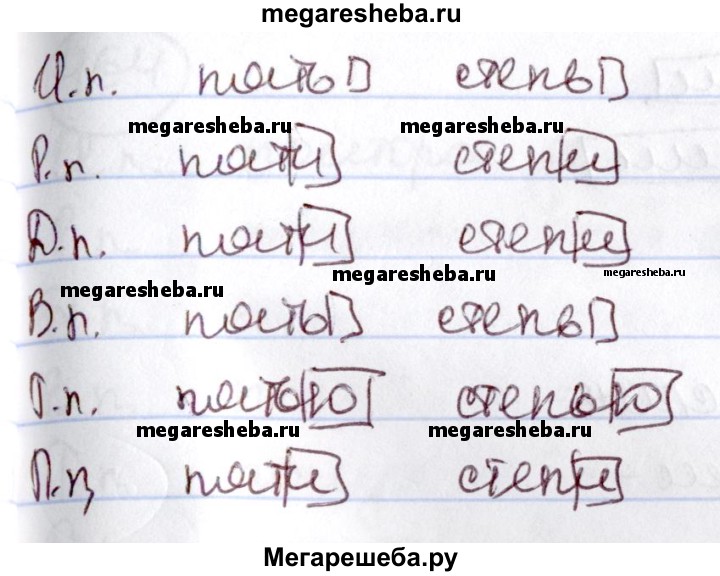 megaresheba.ru
И.п. пять степь
megaresheba.ru megaresheba.ru
Р.п. пяти степи
Д.п. пяти степи
megaresheba.ru megaresheba.ru
megaresheba.ru
В.п. пять степь
Т.п. пятью степью
megaresheba.ru megaresheba.ru
П.п. пяти степи
Мегарешеба.ру